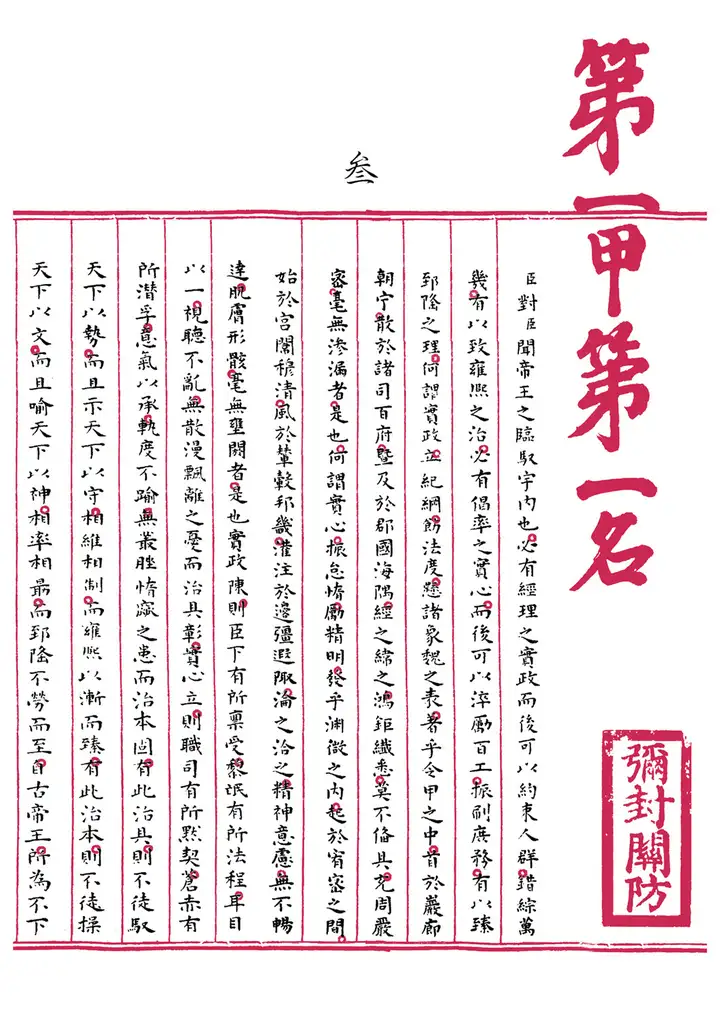 第一甲第一名
彌封關防
叁
臣對臣聞帝王之臨馭宇内也必有經理之實政而後可以約束人群錯綜萬
幾有以致雍熙之治必有倡率之實心而後可以淬勵百工振刷庶務有以臻
郅隆之理何謂實政立紀綱飭法度懸諸象魏之表著乎令甲之中首於巖廊
朝宁散於諸司百府暨及於郡國海隅經之緯之鴻鉅纖悉莫不備具充周嚴
密毫無滲漏者是也何謂實心振怠惰勵精明發乎淵微之内起於宥密之間
始於宫闈穆清風於輦轂邦畿灌注於邊疆遐陬淪之洽之精神意慮無不暢
達肌膚形骸毫無壅閼者是也實政陳則臣下有所稟受黎氓有所法程耳目
以一視聽不亂無散漫飄離之憂而治具彰實心立則職司有所默契蒼赤有
所潛孚意氣以承軌度不踰無叢脞惰窳之患而治本固有此治具則不徒馭
天下以勢而且示天下以守相維相制而雍熙以漸而臻有此治本則不徒操
天下以文而且喻天下以神相率相最而郅隆不勞而至自古帝王所為不下